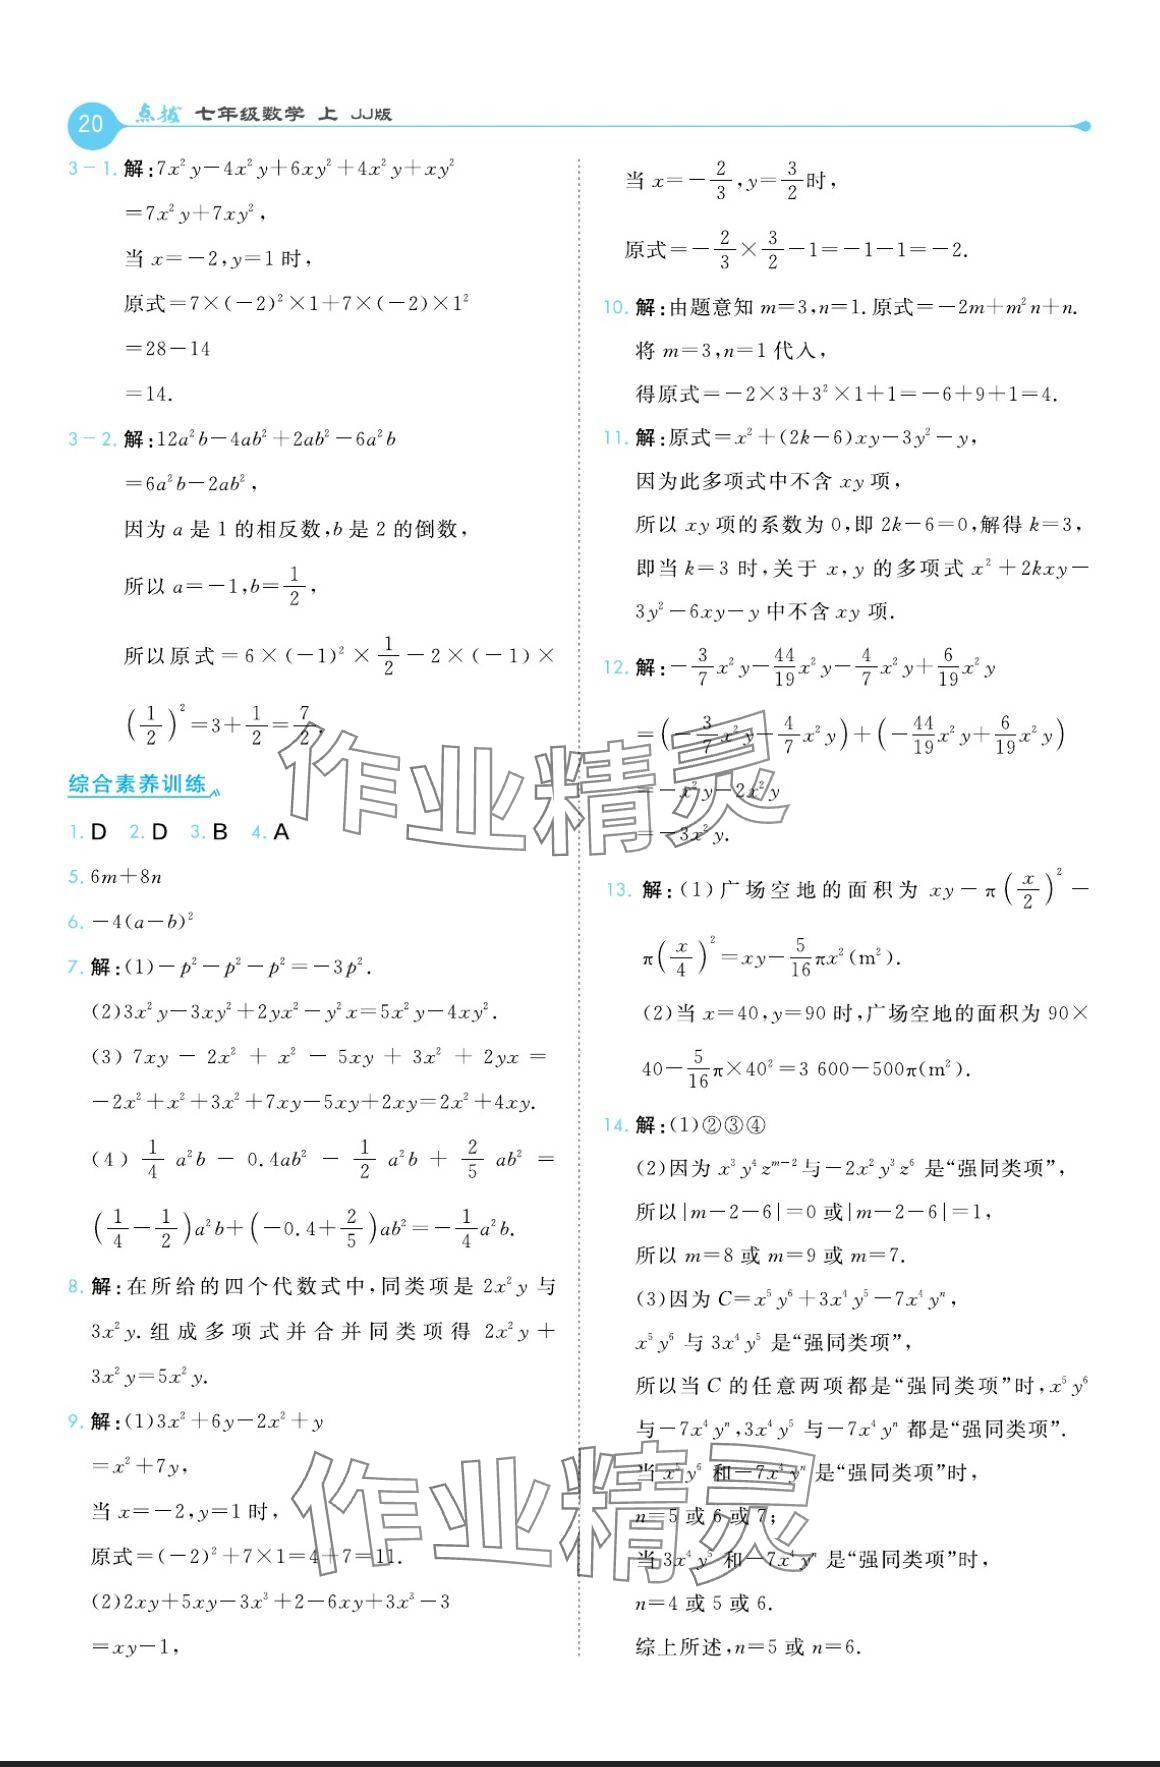 20 点拨 七年级数学 上 JJ版
3-1. 解:7x²y-4x²y+6xy²+4x²y+xy²
=7x²y+7xy²,
当 x=-2,y=1 时,
原式=7×(-2)²×1+7×(-2)×1²
=28-14
=14.
3-2. 解:12a²b-4ab²+2ab²-6a²b
=6a²b-2ab²,
因为 a 是 1 的相反数,b 是 2 的倒数,
所以 a=-1,b=1/2,
所以原式=6×(-1)²×1/2-2×(-1)×
(1/2)²=3+1/2=7/2.
综合素养训练
1. D 2. D 3. B 4. A
5. 6m+8n
6. -4(a-b)²
7. 解:(1)-p²-p²-p²=-3p².
(2)3x²y-3xy²+2yx²-y²x=5x²y-4xy².
(3) 7xy-2x²+x²-5xy+3x²+2yx=
-2x²+x²+3x²+7xy-5xy+2xy=2x²+4xy.
(4) 1/4 a²b-0.4ab²-1/2 a²b+2/5 ab²=
(1/4-1/2)a²b+(-0.4+2/5)ab²=-1/4 a²b.
8. 解:在所给的四个代数式中,同类项是 2x²y 与
3x²y. 组成多项式并合并同类项得 2x²y+
3x²y=5x²y.
9. 解:(1)3x²+6y-2x²+y
=x²+7y,
当 x=-2,y=1 时,
原式=(-2)²+7×1=4+7=11.
(2)2xy+5xy-3x³+2-6xy+3x³-3
=xy-1,
当 x=-2/3,y=3/2 时,
原式=-2/3×3/2-1=-1-1=-2.
10. 解:由题意知 m=3,n=1. 原式=-2m+m²n+n.
将 m=3,n=1 代入,
得原式=-2×3+3²×1+1=-6+9+1=4.
11. 解:原式=x²+(2k-6)xy-3y²-y,
因为此多项式中不含 xy 项,
所以 xy 项的系数为 0,即 2k-6=0,解得 k=3,
即当 k=3 时,关于 x,y 的多项式 x²+2kxy-
3y²-6xy-y 中不含 xy 项.
12. 解:-3/7 x²y-44/19 x²y-4/7 x²y+6/19 x²y
=(-3/7 x²y-4/7 x²y)+(-44/19 x²y+6/19 x²y)
=-x²y-2x²y
=-3x²y.
13. 解:(1)广场空地的面积为 xy-π(x/2)²-
π(x/4)²=xy-5/16 πx²(m²).
(2)当 x=40,y=90 时,广场空地的面积为 90×
40-5/16 π×40²=3 600-500π(m²).
14. 解:(1)②③④
(2)因为 x³y⁴zᵐ⁻² 与-2x²y³z⁶ 是“强同类项”,
所以|m-2-6|=0 或|m-2-6|=1,
所以 m=8 或 m=9 或 m=7.
(3)因为 C=x⁵y⁶+3x⁴y⁵-7x⁴yⁿ,
x⁵y⁶ 与 3x⁴y⁵ 是“强同类项”,
所以当 C 的任意两项都是“强同类项”时,x⁵y⁶
与-7x⁴yⁿ,3x⁴y⁵ 与-7x⁴yⁿ 都是“强同类项”.
当 x⁵y⁶ 和-7x⁴yⁿ 是“强同类项”时,
n=5 或 6 或 7;
当 3x⁴y⁵ 和-7x⁴yⁿ 是“强同类项”时,
n=4 或 5 或 6.
综上所述,n=5 或 n=6.
作业精灵
作业精灵